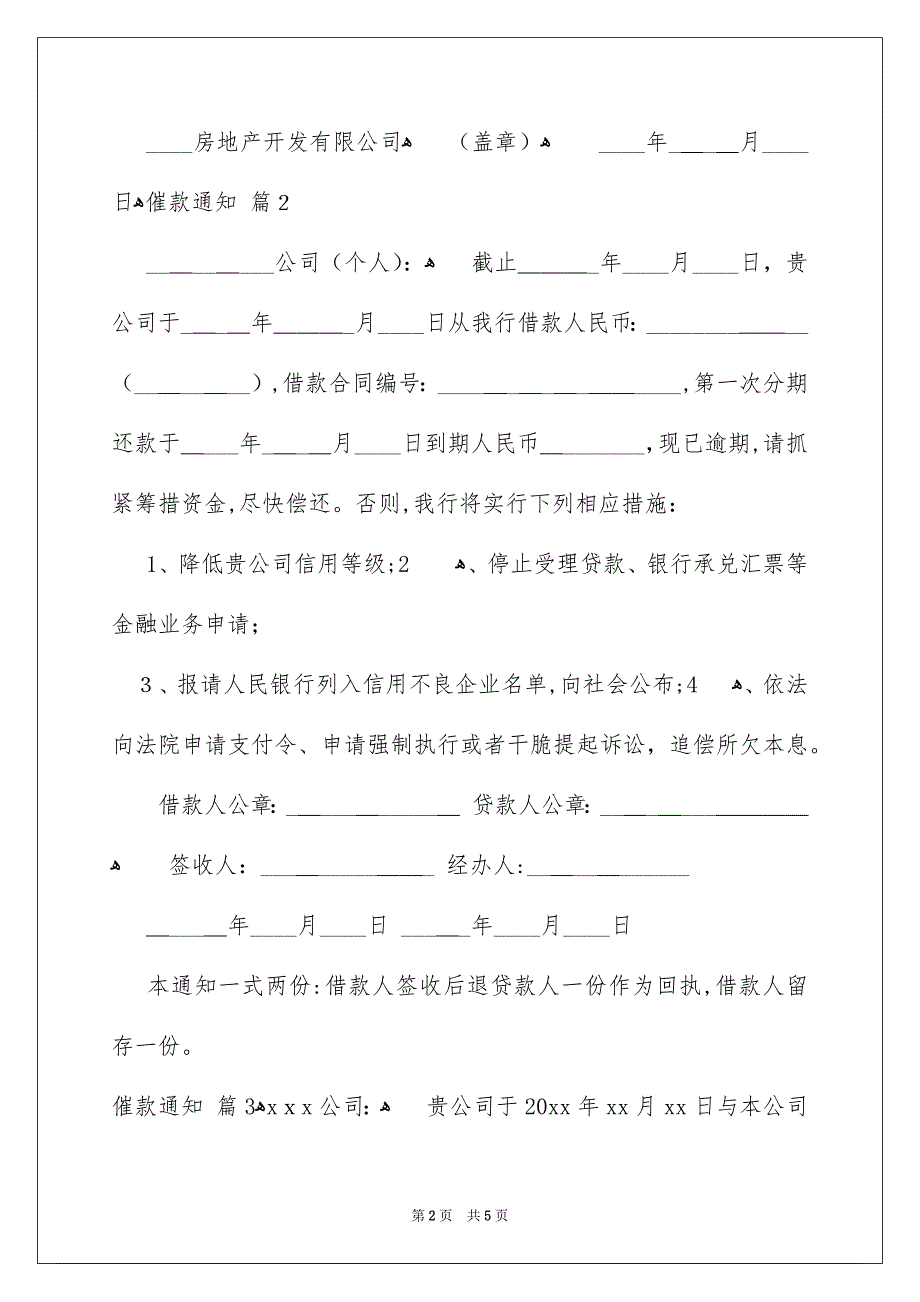 ____房地产开发有限公司ﻫ （盖章）ﻫ ____年______月____
日ﻫ催款通知 篇2
___________公司（个人）：ﻫ 截止_______年____月____日，贵
公司于______年_______月____日从我行借款人民币：______________
（__________），借款合同编号：_____________________，第一次分期
还款于_____年______月____日到期人民币_________，现已逾期，请抓
紧筹措资金，尽快偿还。否则，我行将实行下列相应措施：
1、降低贵公司信用等级；2 ﻫ、停止受理贷款、银行承兑汇票等
金融业务申请；
3、报请人民银行列入信用不良企业名单，向社会公布；4 ﻫ、依法
向法院申请支付令、申请强制执行或者干脆提起诉讼，追偿所欠本息。
借款人公章：_______________ 贷款人公章：__________________
ﻫ 签收人：_______________ 经办人：______________
_______年____月____日 ______年____月____日
本通知一式两份：借款人签收后退贷款人一份作为回执，借款人留
存一份。
催款通知 篇3ﻫxxx公司：ﻫ 贵公司于20xx年xx月xx日与本公司
第2页 共5页